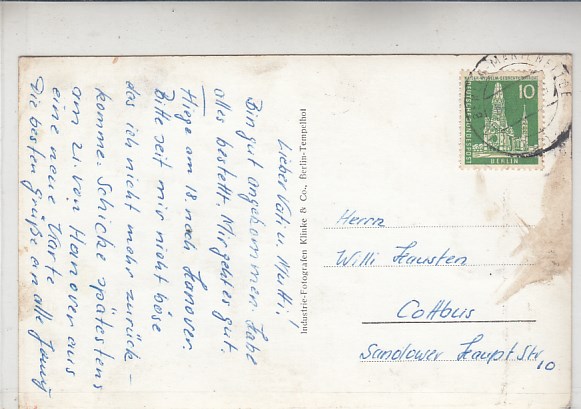 Lieber Vati u. Mutti!
Bin gut angekommen. Habe
alles bestellt. Mir geht es gut.
Fliege am 18 nach Hanover.
Bitte seit mir nicht böse
das ich nicht mehr zurück –
komme. Schicke spätestens
am 21. von Hanover aus
eine neue Karte
Die besten Grüße an alle
Industrie-Fotografen Klinke & Co., Berlin-Tempelhof
10
DEUTSCHE BUNDESPOST
BERLIN
Herrn
Willi
Cottbus
Sandower Haupt Str
10